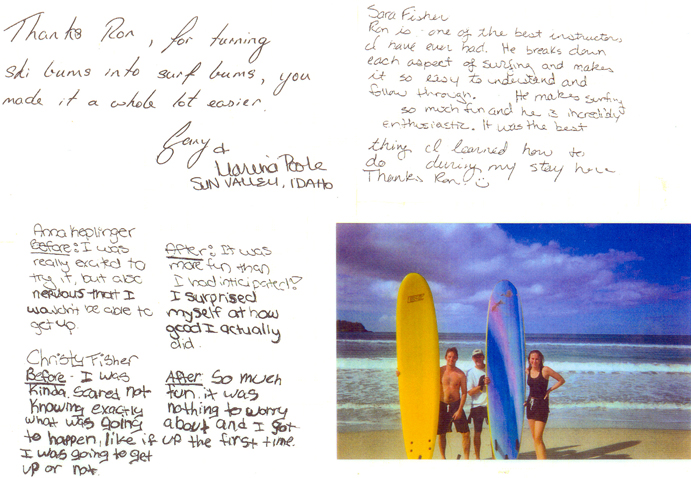 Thanks Ron, for turning
ski bums into surf bums, you
made it a whole lot easier.
Gary &
Marina Poole
SUN VALLEY, IDAHO
Sara Fisher
Ron is one of the best instructors
I have ever had. He breaks down
each aspect of surfing and makes
it so easy to understand and
follow through. He makes surfing
so much fun and he is incredibly
enthusiastic. It was the best
thing I learned how to
do during my stay here
Thanks Ron!
Anna Keplinger
Before: I was
really excited to
try it, but also
nervous that I
wouldn't be able to
get up.
After: It was
more fun than
I had inticipated!
I surprised
myself at how
good I actually
did.
Christy Fisher
Before - I was
Kinda scared not
Knowing exactly
what was going
to happen, like if
I was going to get
up or not.
After So much
fun. it was
nothing to worry
about and I got
up the first time.